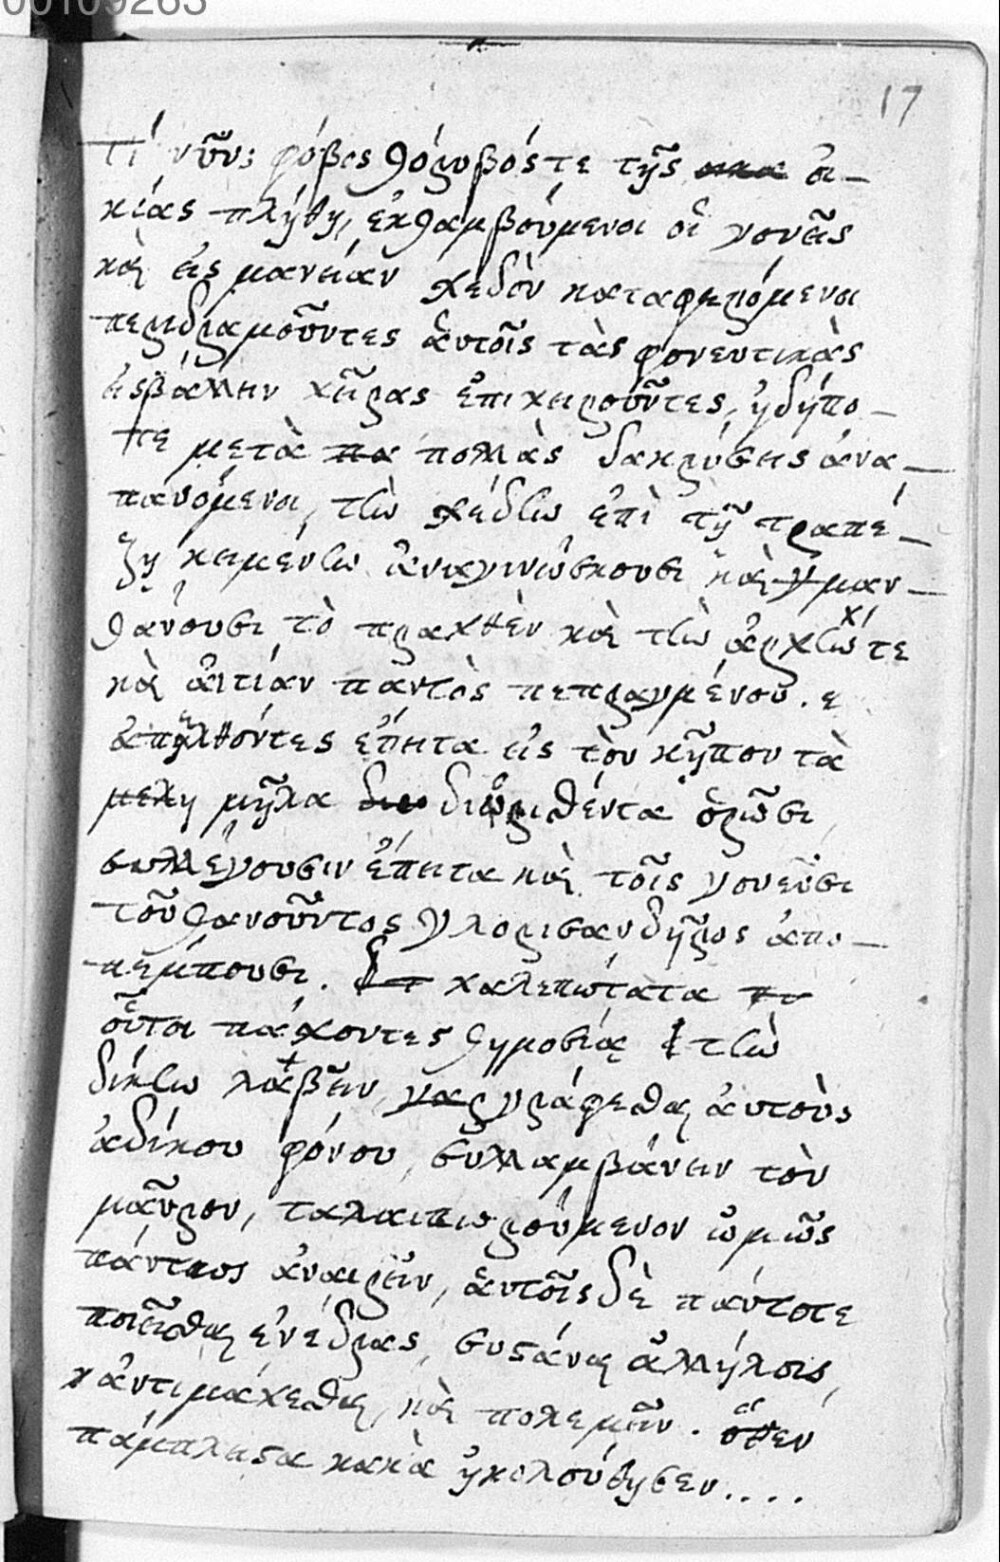 00109263
17
Τί νῦν; φόβος θόρυβός τε τῆς οἰ-
κίας πλήθη, ἐκθαμβούμενοι οἱ γονεῖς
καὶ εἰς μανείαν σχεδὸν καταφερόμενοι
περιδραμοῦντες ἀυτοῖς τὰς φονευτικὰς
ἐισβάλλειν χεῖρας ἐπιχειροῦντες, ἠδήπο-
τε μετὰ πολλὰς δακρύσεις ἀνα-
παυόμενοι, τὴν σχέδην ἐπὶ τῇ τραπέ-
ζῃ κειμένην ἀναγινώσκουσι καὶ μαν-
θάνουσι τὸ πραχθὲν καὶ τὴν ἀρχήν τε
καὶ ἀιτίαν παντὸς πεπραγμένου.
ἀπελθόντες ἔπειτα εἰς τὸν κῆπον τὰ
μῆλα διωρισθέντα ὁρῶσι,
συλλέγουσιν ἔπειτα καὶ τοῖς γονεῦσι
τοῦ θανοῦντος Γλορισανδῆρος ἀπο-
πέμπουσι. χαλεπώτατα
οὗτοι πάσχοντες θυμοβίᾳ τὴν
δίκην λαβεῖν, γράφεσθαι ἀυτοὺς
ἀδίκου φόνου, συλλαμβάνειν τὸν
μαῦρον, ταλαιπωρούμενον ὠμῶς
πάντως ἀναιρεῖν, ἀυτοῖς δὲ πάντοτε
ποιεῖσθαι ἐνέδρας, συστάναι ἀλλήλοις,
ἀντιμάχεσθαι, καὶ πολεμεῖν. ὅθεν
πάμπλειστα κακὰ ἠκολούθησεν....